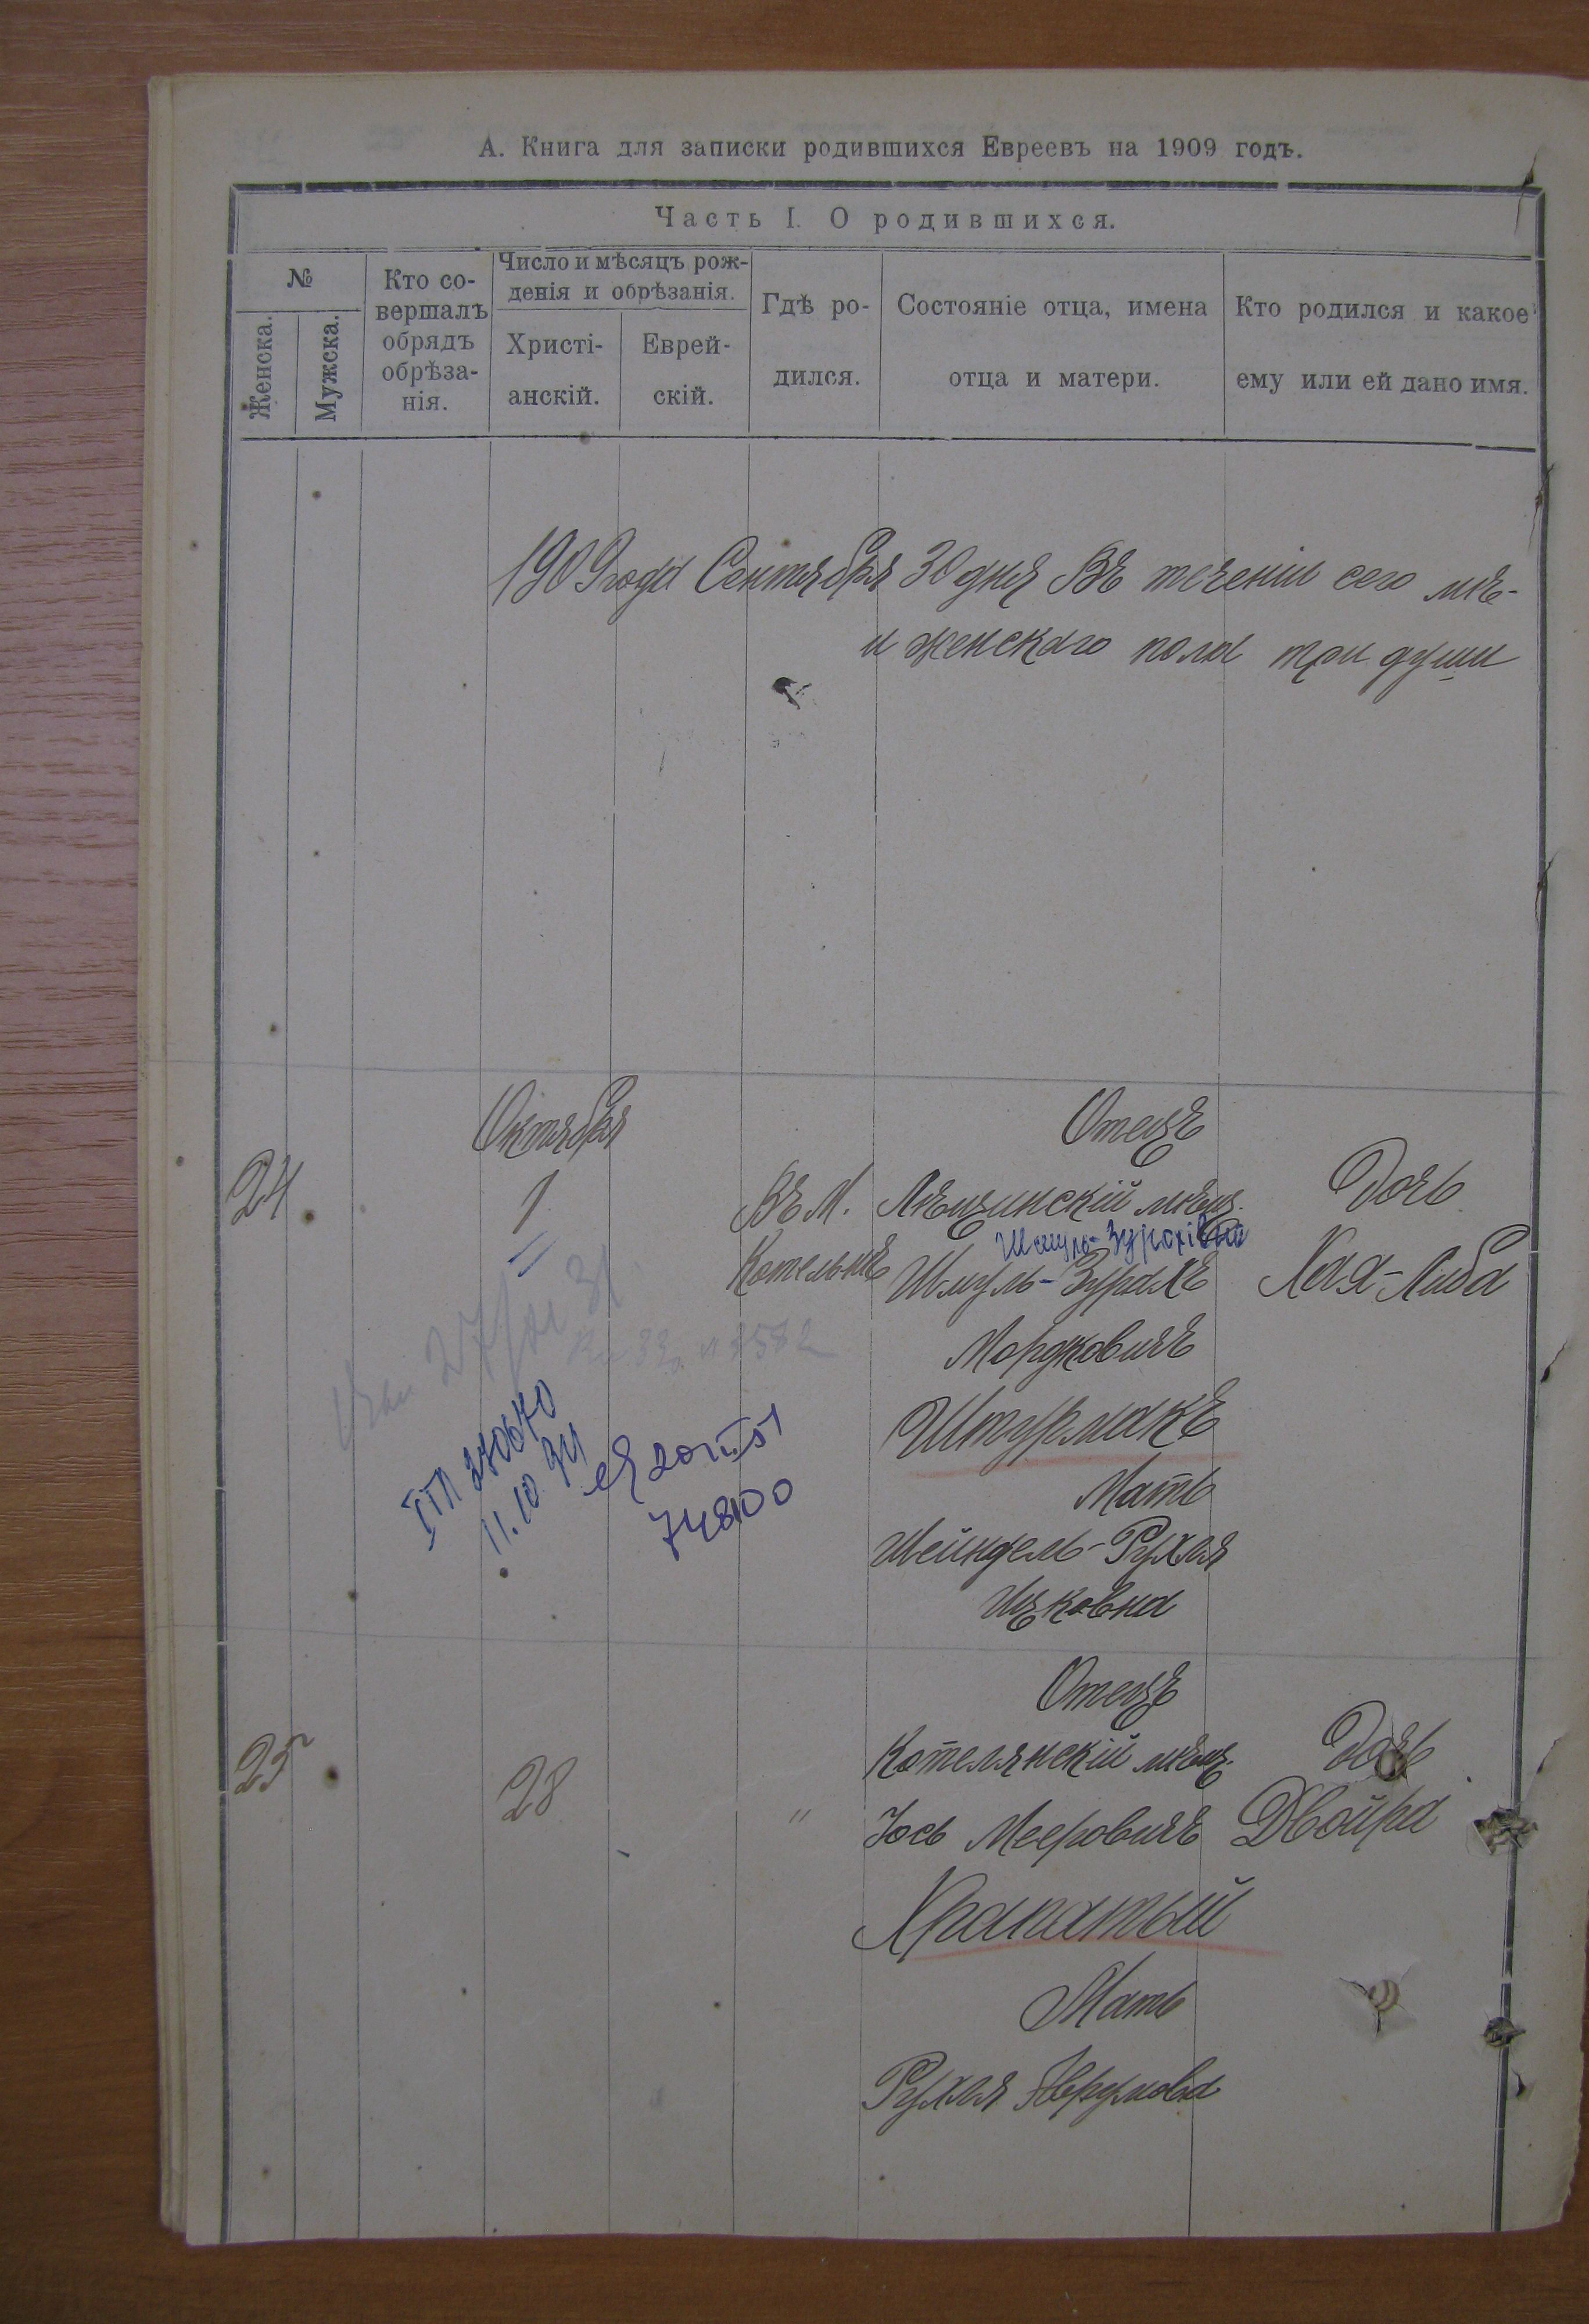 А. Книга для записки родившихся Евреевъ на 1909 годъ.
Часть I. О родившихся.
№
Женска.
Мужска.
Кто со-
вершалъ
обрядъ
обрѣза-
нія.
Число и мѣсяцъ рож-
денія и обрѣзанія.
Христі-
анскій.
Еврей-
скій.
Гдѣ ро-
дился.
Состояніе отца, имена
отца и матери.
Кто родился и какое
ему или ей дано имя.
1909 года Сентября 30 дня Въ теченіи сего мѣ-
и женскаго пола три души
Октября
24
1
Въ М.
Котельнѣ
Отецъ
Лѣщинскій мѣщ.
Шмуль-Зурахъ
Мордковичъ
Штурмакъ
Мать
Шейндель-Рухля
Ицковна
Дочь
Хая-Либа
11.10.
74800
25
28
"
Отецъ
Котелянскій мѣщ.
Іось Мееровичъ
Храпатый
Мать
Рухля
Дочь
Двойра